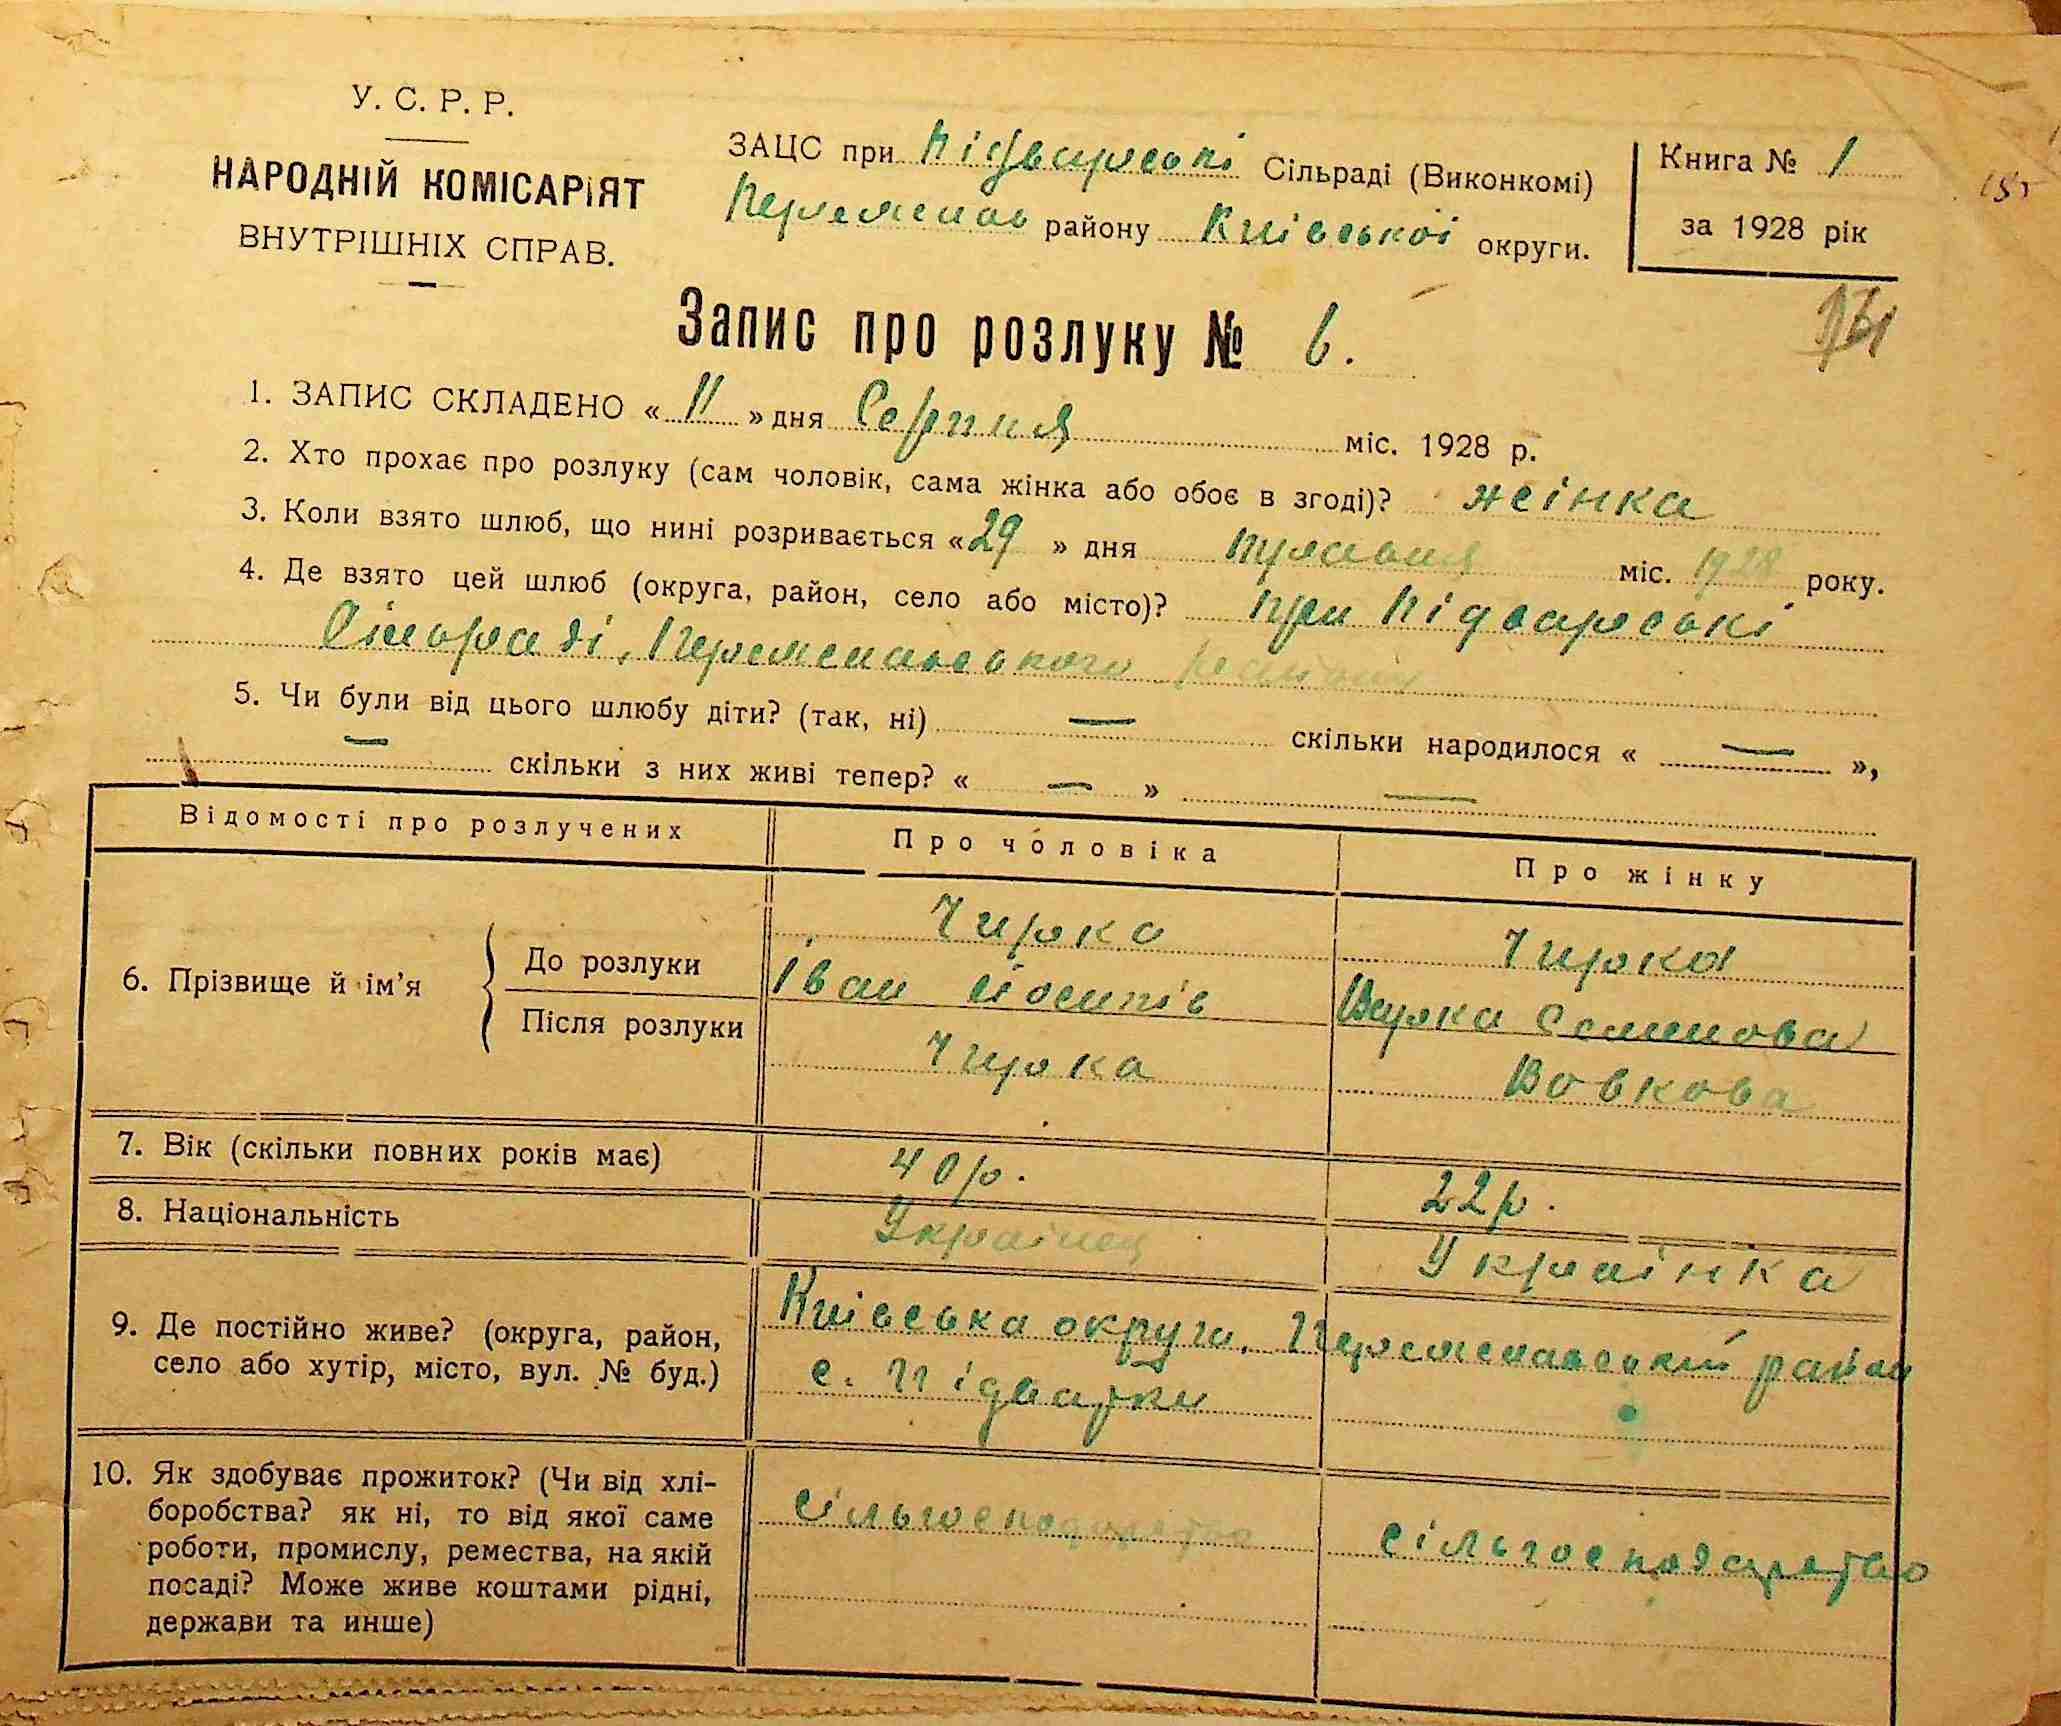 У. С. Р. Р.
НАРОДНІЙ КОМІСАРІЯТ
ВНУТРІШНІХ СПРАВ.
ЗАЦС при Підварські Сільраді (Виконкомі)
району Київської округи.
Книга № 1
за 1928 рік
Запис про розлуку № 6.
1. ЗАПИС СКЛАДЕНО « 11 » дня Серпня міс. 1928 р.
2. Хто прохає про розлуку (сам чоловік, сама жінка або обоє в згоді)? жінка
3. Коли взято шлюб, що нині розривається « 29 » дня травня міс. 1928 року.
4. Де взято цей шлюб (округа, район, село або місто)? при Підварські
Сільраді, району
5. Чи були від цього шлюбу діти? (так, ні) — скільки народилося « — »,
— скільки з них живі тепер? « — » —
Відомості про розлучених Про чоловіка Про жінку
6. Прізвище й ім'я
До розлуки
Після розлуки
Чирка
Іван Йосипів
Чирка
Чирка
Семенова
Вовкова
7. Вік (скільки повних років має) 40 р. 22 р.
8. Національність Українец Українка
9. Де постійно живе? (округа, район,
село або хутір, місто, вул. № буд.)
Київська округа, район
с. Підварки
10. Як здобуває прожиток? (Чи від хлі-
боробства? як ні, то від якої саме
роботи, промислу, ремества, на якій
посаді? Може живе коштами рідні,
держави та инше)
сільгосподарство
сільгосподарство